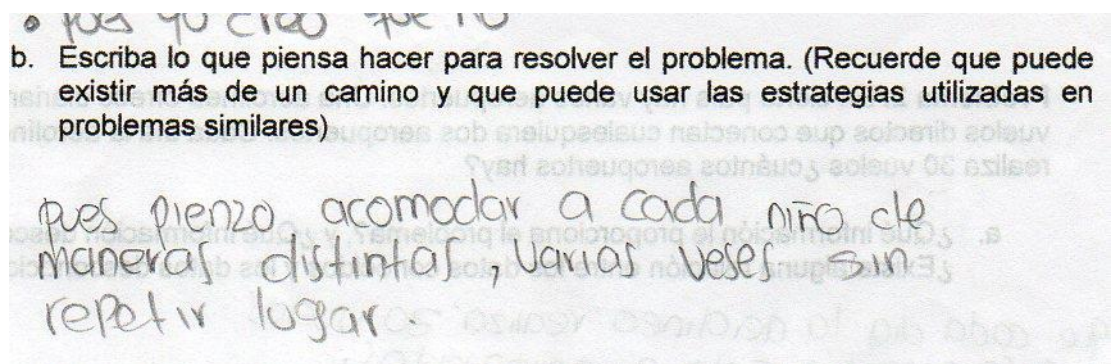 • pues yo creo que no
b. Escriba lo que piensa hacer para resolver el problema. (Recuerde que puede
existir más de un camino y que puede usar las estrategias utilizadas en
problemas similares)
pues pienzo acomodar a cada niño de
maneras distintas, varias veses sin
repetir lugar